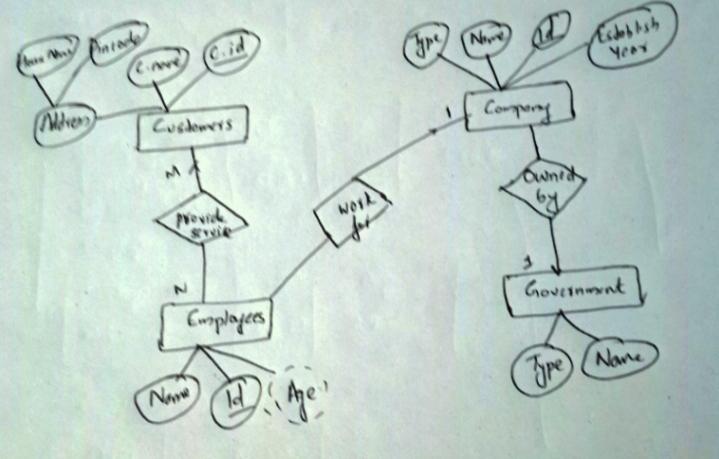 Pincode
C.name
C.id
Address
Customers
M
Provide
service
N
Employees
Name
Id
Age
work
for
1
Type
Name
Id
Establish
Year
Company
Owned
by
1
Government
Type
Name